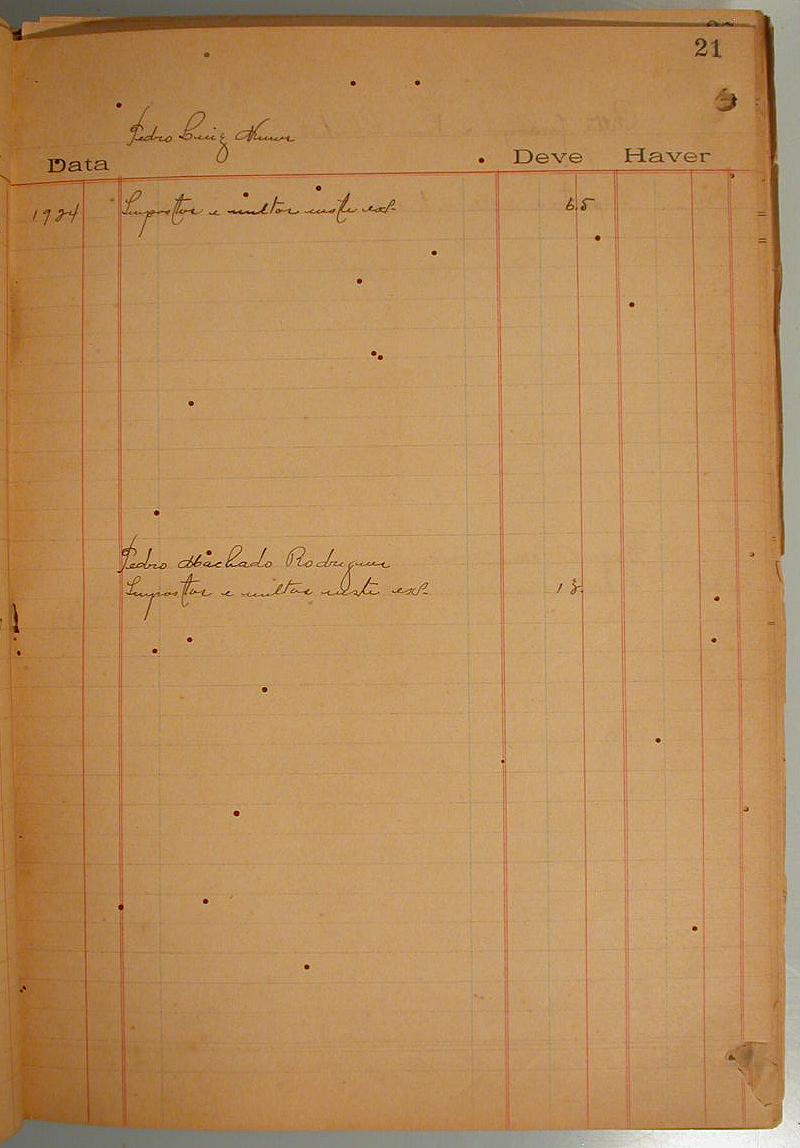 21
Pedro Luiz Nunes
Data Deve Haver
1924 Impostos e multas neste exf. 6.5
Pedro Machado Rodrigues
Impostos e multas neste exf.